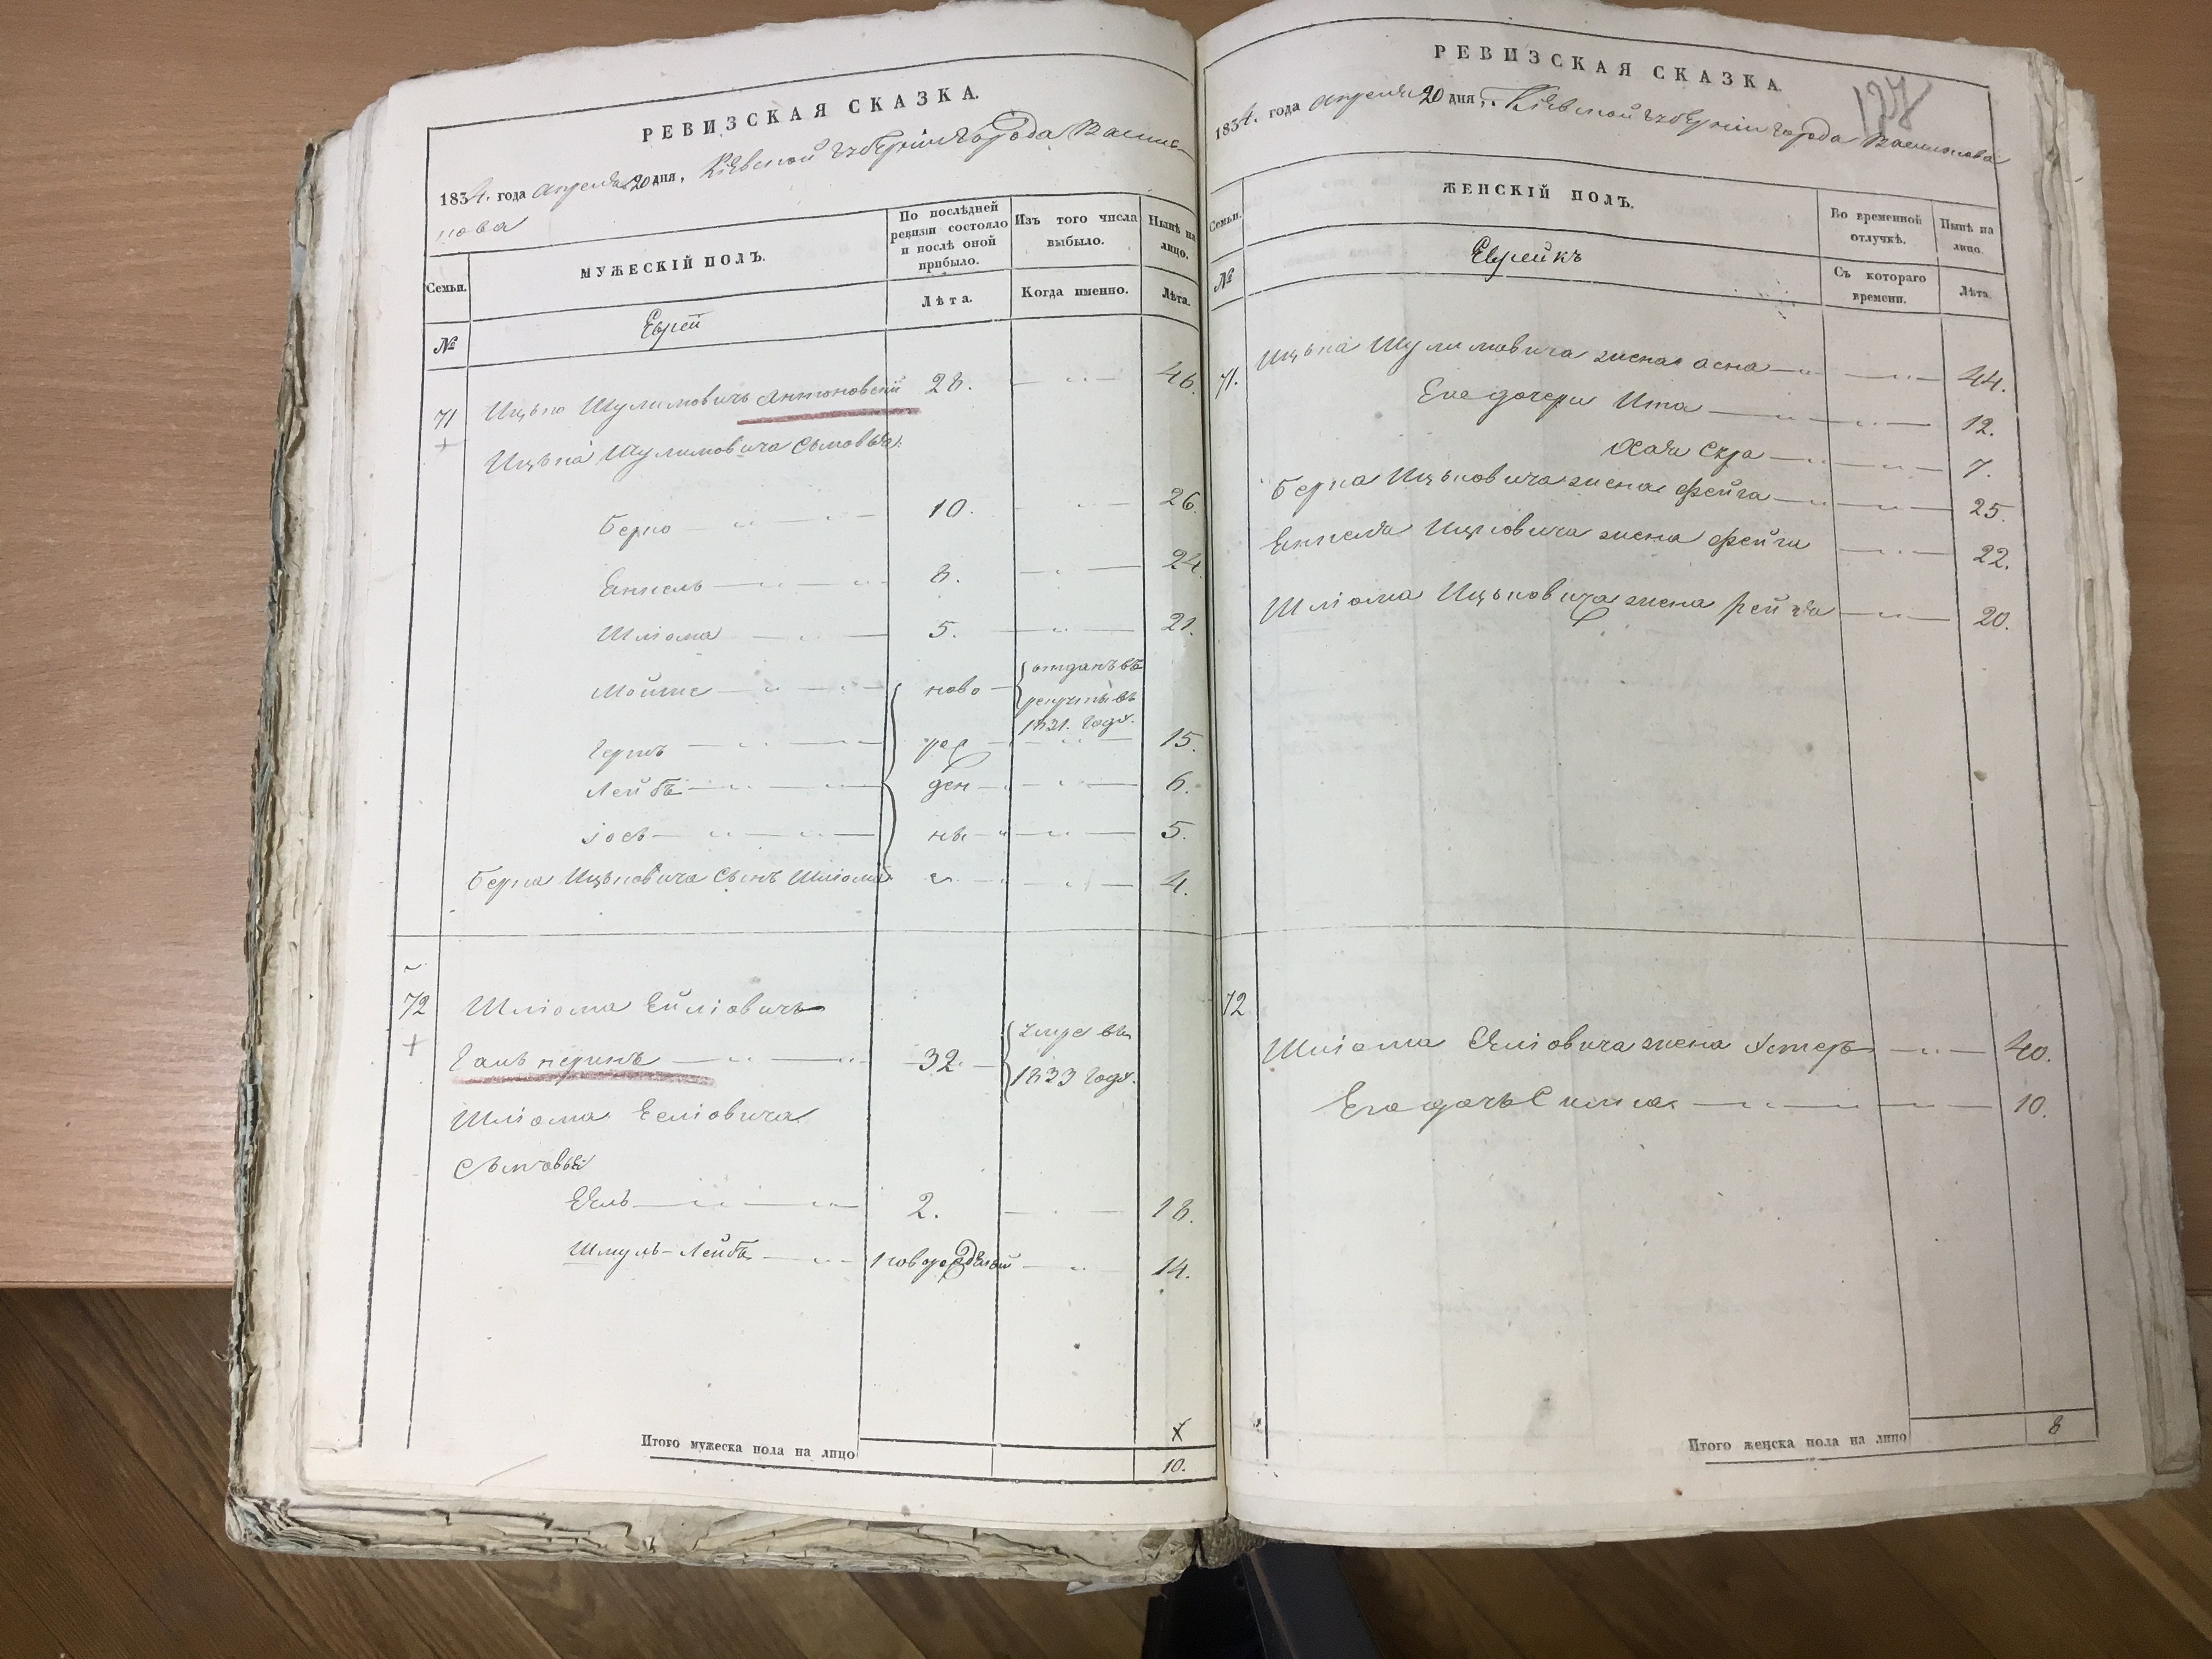 РЕВИЗСКАЯ СКАЗКА.
1834. года апреля 20 дня, Кіевской губерніи города Василь-
кова
Семьи.
МУЖЕСКІЙ ПОЛЪ.
По послѣдней ревизіи состояло и послѣ оной прибыло.
Изъ того числа выбыло.
Нынѣ на лицо.
№
Еврей
Лѣта.
Когда именно.
Лѣта.
71 Ицько Шулимовичъ Антоновскій 28. 46.
Ицька Шулимовича сыновья:
Берко 10. 26.
Енкель 8. 24.
Шліома 5. 21.
Мойше ново отданъ въ
рекруты въ
1831. году.
Гершъ рож 15.
Лейба ден 6.
Іось ны 5.
Берка Ицьковича сынъ Шліома 4.
72 Шліома
Гальперинъ 32. умре въ
1833 году.
Шліома
сыновья
2. 18.
Шмуль-Лейба новорожденый 14.
Итого мужеска пола на лицо
10.
РЕВИЗСКАЯ СКАЗКА.
137
1834. года апреля 20 дня, Кіевской губерніи города Василькова
Семьи.
ЖЕНСКІЙ ПОЛЪ.
Во временной отлучкѣ.
Нынѣ на лицо.
№
Еврейкъ
Съ котораго времени.
Лѣта.
71. Ицька Шулимовича жена Асна 44.
Его дочери Ита 12.
Хая Сура 7.
Берка Ицьковича жена Фейга 25.
Енкеля Ицковича жена Фейга 22.
Шліома Ицьковича жена Рейзя 20.
72
Шліома жена 40.
Его дочь 10.
Итого женска пола на лицо 8